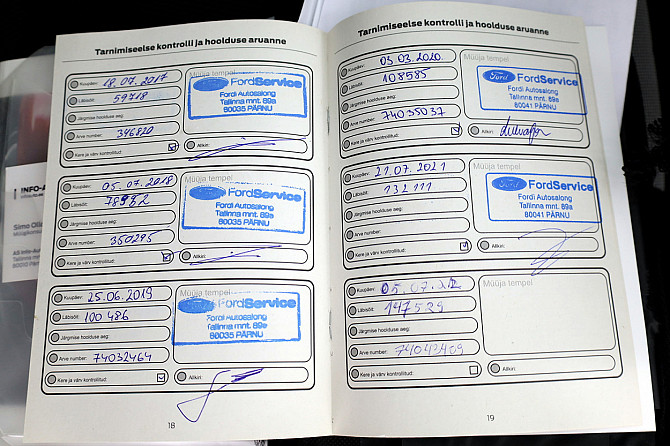 Tarnimiseelse kontrolli ja hoolduse aruanne
Kuupäev: 18.07.2017
Läbisõit: 59718
Järgmise hoolduse aeg:
Arve number: 346820
Kere ja värv kontrollitud:
Müüja tempel
Ford FordService
Fordi Autosalong
Tallinna mnt. 89a
80035 PÄRNU
Allkiri:
Kuupäev: 05.07.2018
Läbisõit:
Järgmise hoolduse aeg:
Arve number: 350295
Kere ja värv kontrollitud:
Müüja tempel
Ford FordService
Fordi Autosalong
Tallinna mnt. 89a
80035 PÄRNU
Allkiri:
Kuupäev: 25.06.2019
Läbisõit: 100 486
Järgmise hoolduse aeg:
Arve number: 74032464
Kere ja värv kontrollitud:
Müüja tempel
Ford FordService
Fordi Autosalong
Tallinna mnt. 89a
80035 PÄRNU
Allkiri:
18
Tarnimiseelse kontrolli ja hoolduse aruanne
Kuupäev: 05.03.2020.
Läbisõit: 108585
Järgmise hoolduse aeg:
Arve number: 74035037
Kere ja värv kontrollitud:
Müüja tempel
Ford FordService
Fordi Autosalong
Tallinna mnt. 89a
80041 PÄRNU
Allkiri:
Kuupäev: 21.07.2021
Läbisõit: 132 111
Järgmise hoolduse aeg:
Arve number:
Kere ja värv kontrollitud:
Müüja tempel
Ford FordService
Fordi Autosalong
Tallinna mnt. 89a
80041 PÄRNU
Allkiri:
Kuupäev:
Läbisõit: 147529
Järgmise hoolduse aeg:
Arve number:
Kere ja värv kontrollitud:
Müüja tempel
Allkiri:
19